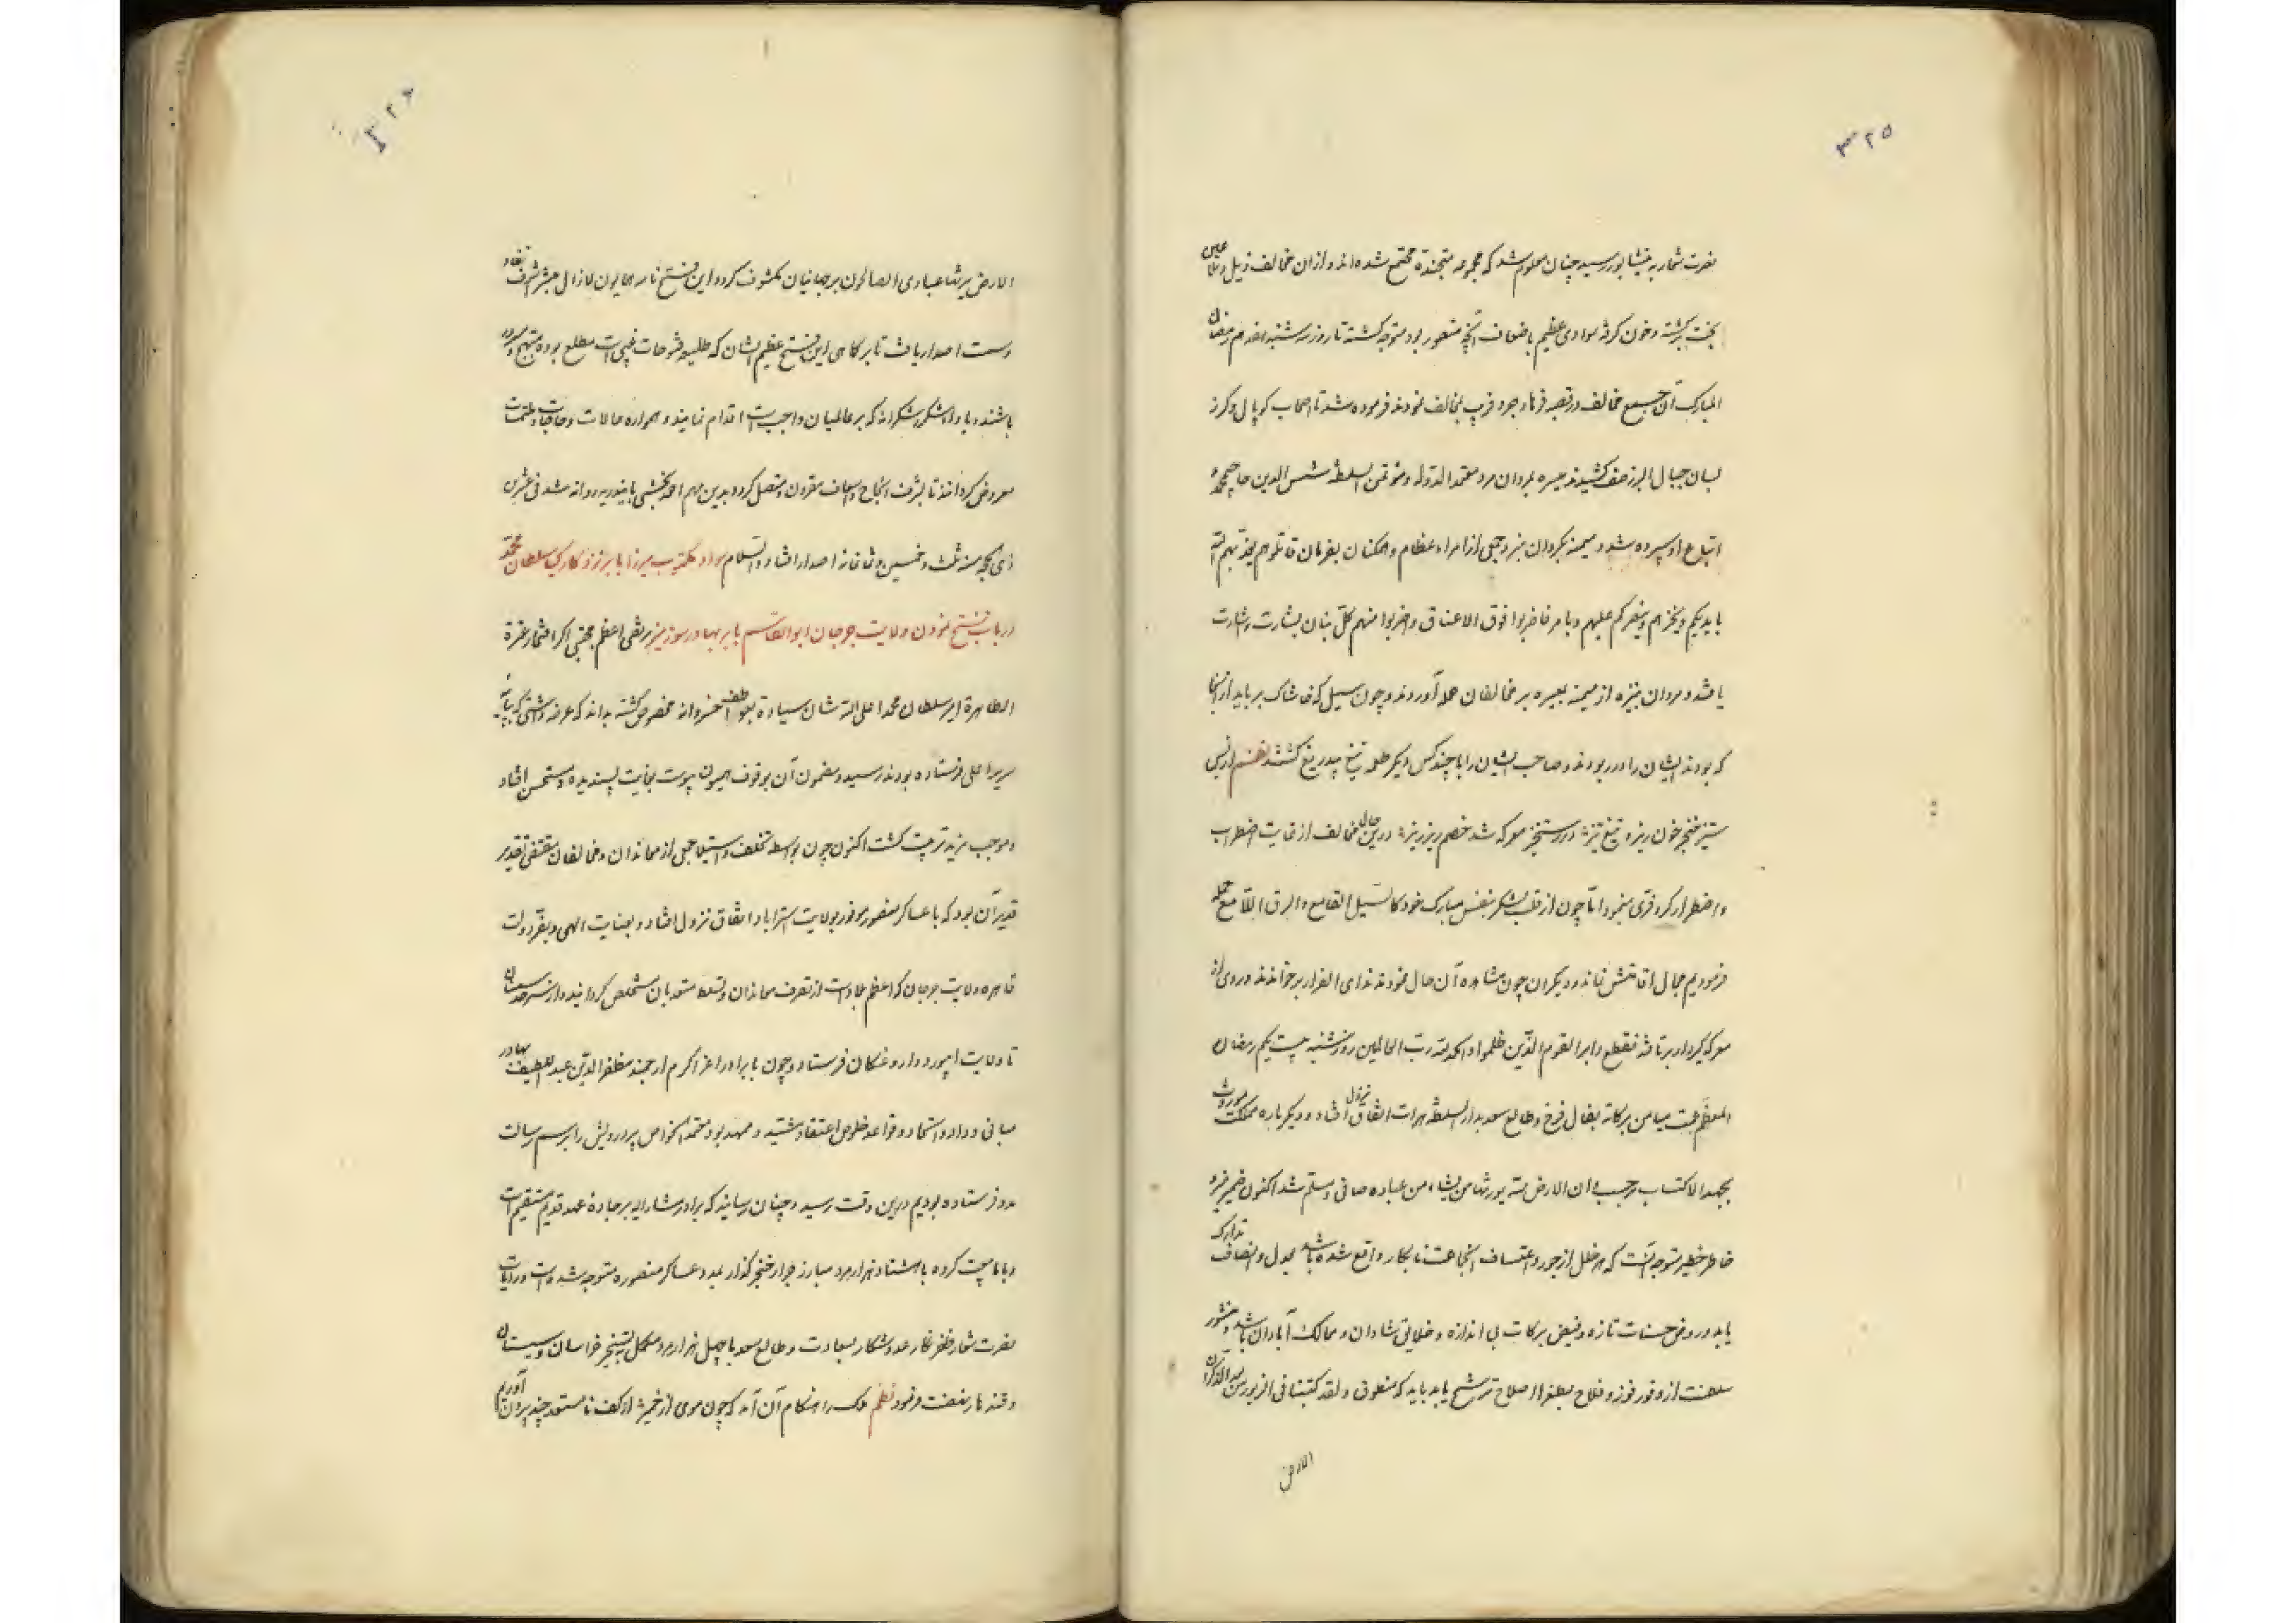 ۳۲۵
نصرت شعار به نیشابور رسید چنان معلوم شد که مجموعه متجنده مجتمع شده‌اند و ازان مخالف ذیل و علی
بخت برگشته و خون گرفته سوادی عظیم باضعاف آنچه متصور بود متوجه گشته تا روز سه شنبه هفدهم رمضان
المبارک آن جمیع مخالف در قصبه فرهادجرد قریب مخالف نمودند فرموده شد تا اصحاب کوپال و گرز
بسان جبال البرز صف کشیدند میسره بمردان مرد معتمد الدوله و مؤتمن السلطنه شمس الدین حاجی محمد
اتباع او سپرده شد و میمنه بگردان نبرد جمعی از امراء عظام و همکنان بفرمان قاتلوهم یعذبهم الله
بایدیکم و یخزهم و ینصرکم علیهم و بامر فاضربوا فوق الاعناق و اضربوا منهم کل بنان بشارت و اشارت
یافتند و مردان نبرد از میمنه بمیسره بر مخالفان حمله آوردند و چون سیل که خاشاک برباید از انجا
که بودند ایشان را در ربودند و صاحب ایشان را با چند کس دیگر طعمه تیغ بیدریغ گشتند نظم از بس
ستیز خنجر خون ریز و تیغ تیز در رستخیز معرکه شد خصم ریز ریز درین حال مخالف از غایت اضطراب
و اضطرار کر و فری مینمود اما چون از قلب لشکر بنفس مبارک خود کالسیل القامع و البرق اللامع حمله
فرمودیم مجال اقامتش نماند و دیگران چون مشاهده آن حال نمودند ندای الفرار بر خواندند و روی از
معرکه کردار برتافته فقطع دابر القوم الذین ظلموا و الحمد لله رب العالمین روز شنبه بیست یکم رمضان
المعظم عمت میامن برکاته بفال فرخ و طالع سعد بدار السلطنه هرات اتفاق نزول افتاد و دیگر باره مملکت موروث
بجمد الاکتساب بر حسب ان الارض لله یورثها من یشاء من عباده صافی و مسلم شد اکنون ضمیر منیر و
خاطر خطیر متوجه آنست که هر خلل از جور و اعتساف آن جماعت نابکار واقع شده باشد بعدل و انصاف تدارک
یابد و روض حسنات تازه و فیض برکات بی اندازه و خلایق شادان و ممالک آبادان باشد و منشور
سلطنت از وفور فوز و فلاح بطغرا اصلاح ترشیح یابد باید که منطوق و لقد کتبنا فی الزبور من بعد الذکر ان
الارض
۳۲۶
الارض یرثها عبادی الصالحون بر جهانیان مکشوف گردد این فتح نامه همایون لازال مبشرا شرف نفاد
و سمت اصدار یافت تا بر کماهی این فتح عظیم الشان که طلیعه فتوحات غیبی است مطلع بوده مبتهج و مسرور
باشند و با دا شکر شکرانه که بر عالمیان واجب است اقدام نمایند و همواره حالات و حاجات و ملتمسات
معروض گردانند تا بشرف انجاح و اسعاف مقرون و متصل گردد بدین مهم احمد بخشی بانیدیه روانه شد فی عشرین
ذی حجه سنه ثلث و خمسین و ثمانمائه اصدار افتاد و السلام سواد مکتوب میرزا بابر نزد کارکیا سلطان محمد
در باب فتح نمودن ولایت جرجان ابوالقاسم بابر بهادر سوزیمیز مرتضی اعظم مجتبی اکرم افتخار عترة
الطاهرة امیر سلطان محمد اعلی الله شان سیادة بعواطف خسروانه مخصوص گشته بداند که عرضه داشتی که بپایه
سریر اعلی فرستاده بودند رسید و مضمون آن بوقوف همیون پیوست بغایت پسندیده و مستحسن افتاد
و موجب مزید تربیت گشت اکنون چون بواسطه تخلف و استیلا جمعی از معاندان و مخالفان مقتضی تقدیر
قدیر آن بود که با عساکر منصور موفور بولایت استراباد اتفاق نزول افتاد و بعنایت الهی و بفر دولت
قاهره ولایت جرجان که اعظم بلاد است از تصرف معاندان و تسلط متعدیان مستخلص گردانید و از سرحد سمنان
تا ولایت ابیورد داروغگان فرستاد و چون با برادر اعز اکرم ارجمند مظفر الدین عبد اللطیف بهادر
مبانی وداد و اتحاد و قواعد خلوص اعتقاد مشید و ممهد بود معتمد الخواص پیر درویش را برسم رسالت
مدو فرستاده بودیم درین وقت رسید و چنان رسانید که برادر مشارالیه بر جادهٔ عهد قدیم مستقیم است
و با ما بیعت کرده با هشتاد هزار مرد مبارز جرار خنجر گذار بمدد عساکر منصوره متوجه شده است و رایات
نصرت شعار ظفر نگار عدو شکار بسعادت و طالع سعد با چهل هزار مرد مکمل بتسخیر خراسان و سیستان
و قندهار نهضت فرمود نظم ملک را هنگام آن آمد که چون موی از خمیر از کف نا مستعد چند بیرون آوریم